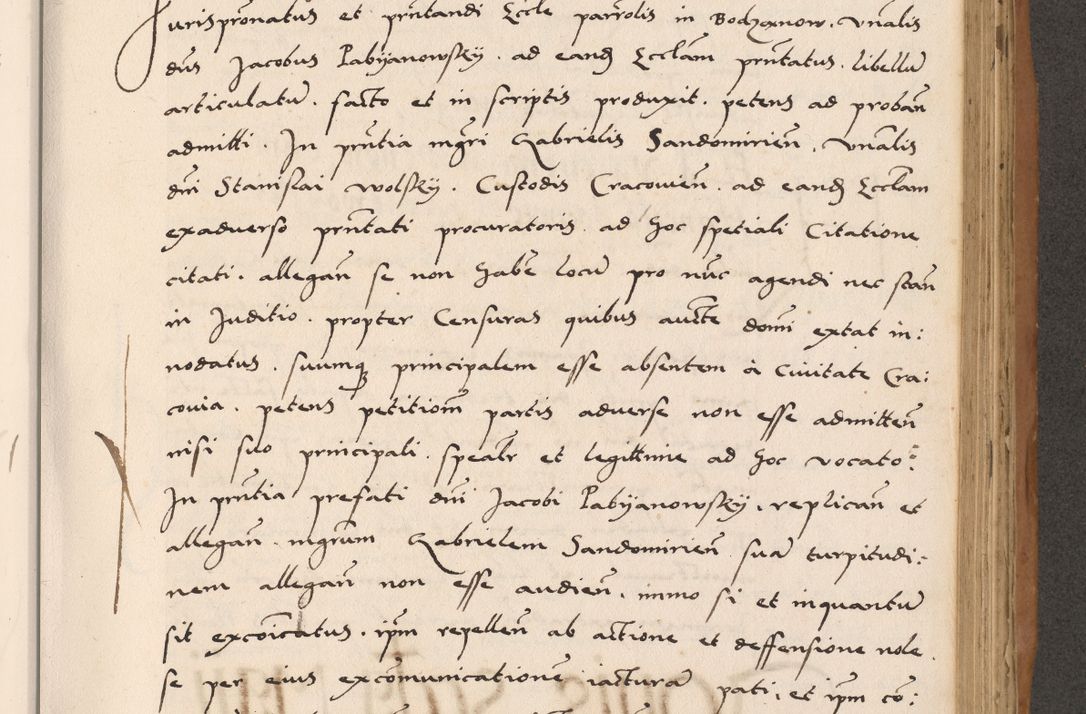 Jurispronatus et prntandi Eccle parrolis in Bodzanow. Vnalis
dns Jacobus Pabyanowsky. ad eand Ecclam prntatus. libellu
articulatu. facto et in scriptis produxit. petens ad proban
admitti. In prntia mgri Gabrielis Sandomirien. Vnalis
dni Stanislai Wolsky. Custodis Cracouien. ad eand Ecclam
exaduerso prntati procuratoris ad hoc spetiali Citatione
citati. allegan se non habe locu pro nuc agendi nec stan
in Juditio. propter Censuras quibus aucte domi extat in:
nodatus. suumq principalem esse absentem à Ciuitate Cra:
couia. petens petitiom partis aduerse non esse admitten
nisi suo principali. spealr et legittime ad hoc vocato.
In prntia prefati dni Jacobi Pabyanowsky. replican et
allegan. mgrum Gabrielem Sandomirien sua turpitudi:
nem allegan non esse audien. immo si et inquantu
sit excoicatus. ipm repellen ab actione et deffensione nole.
se per eius excomunicatione iactura pati, et ipm co: